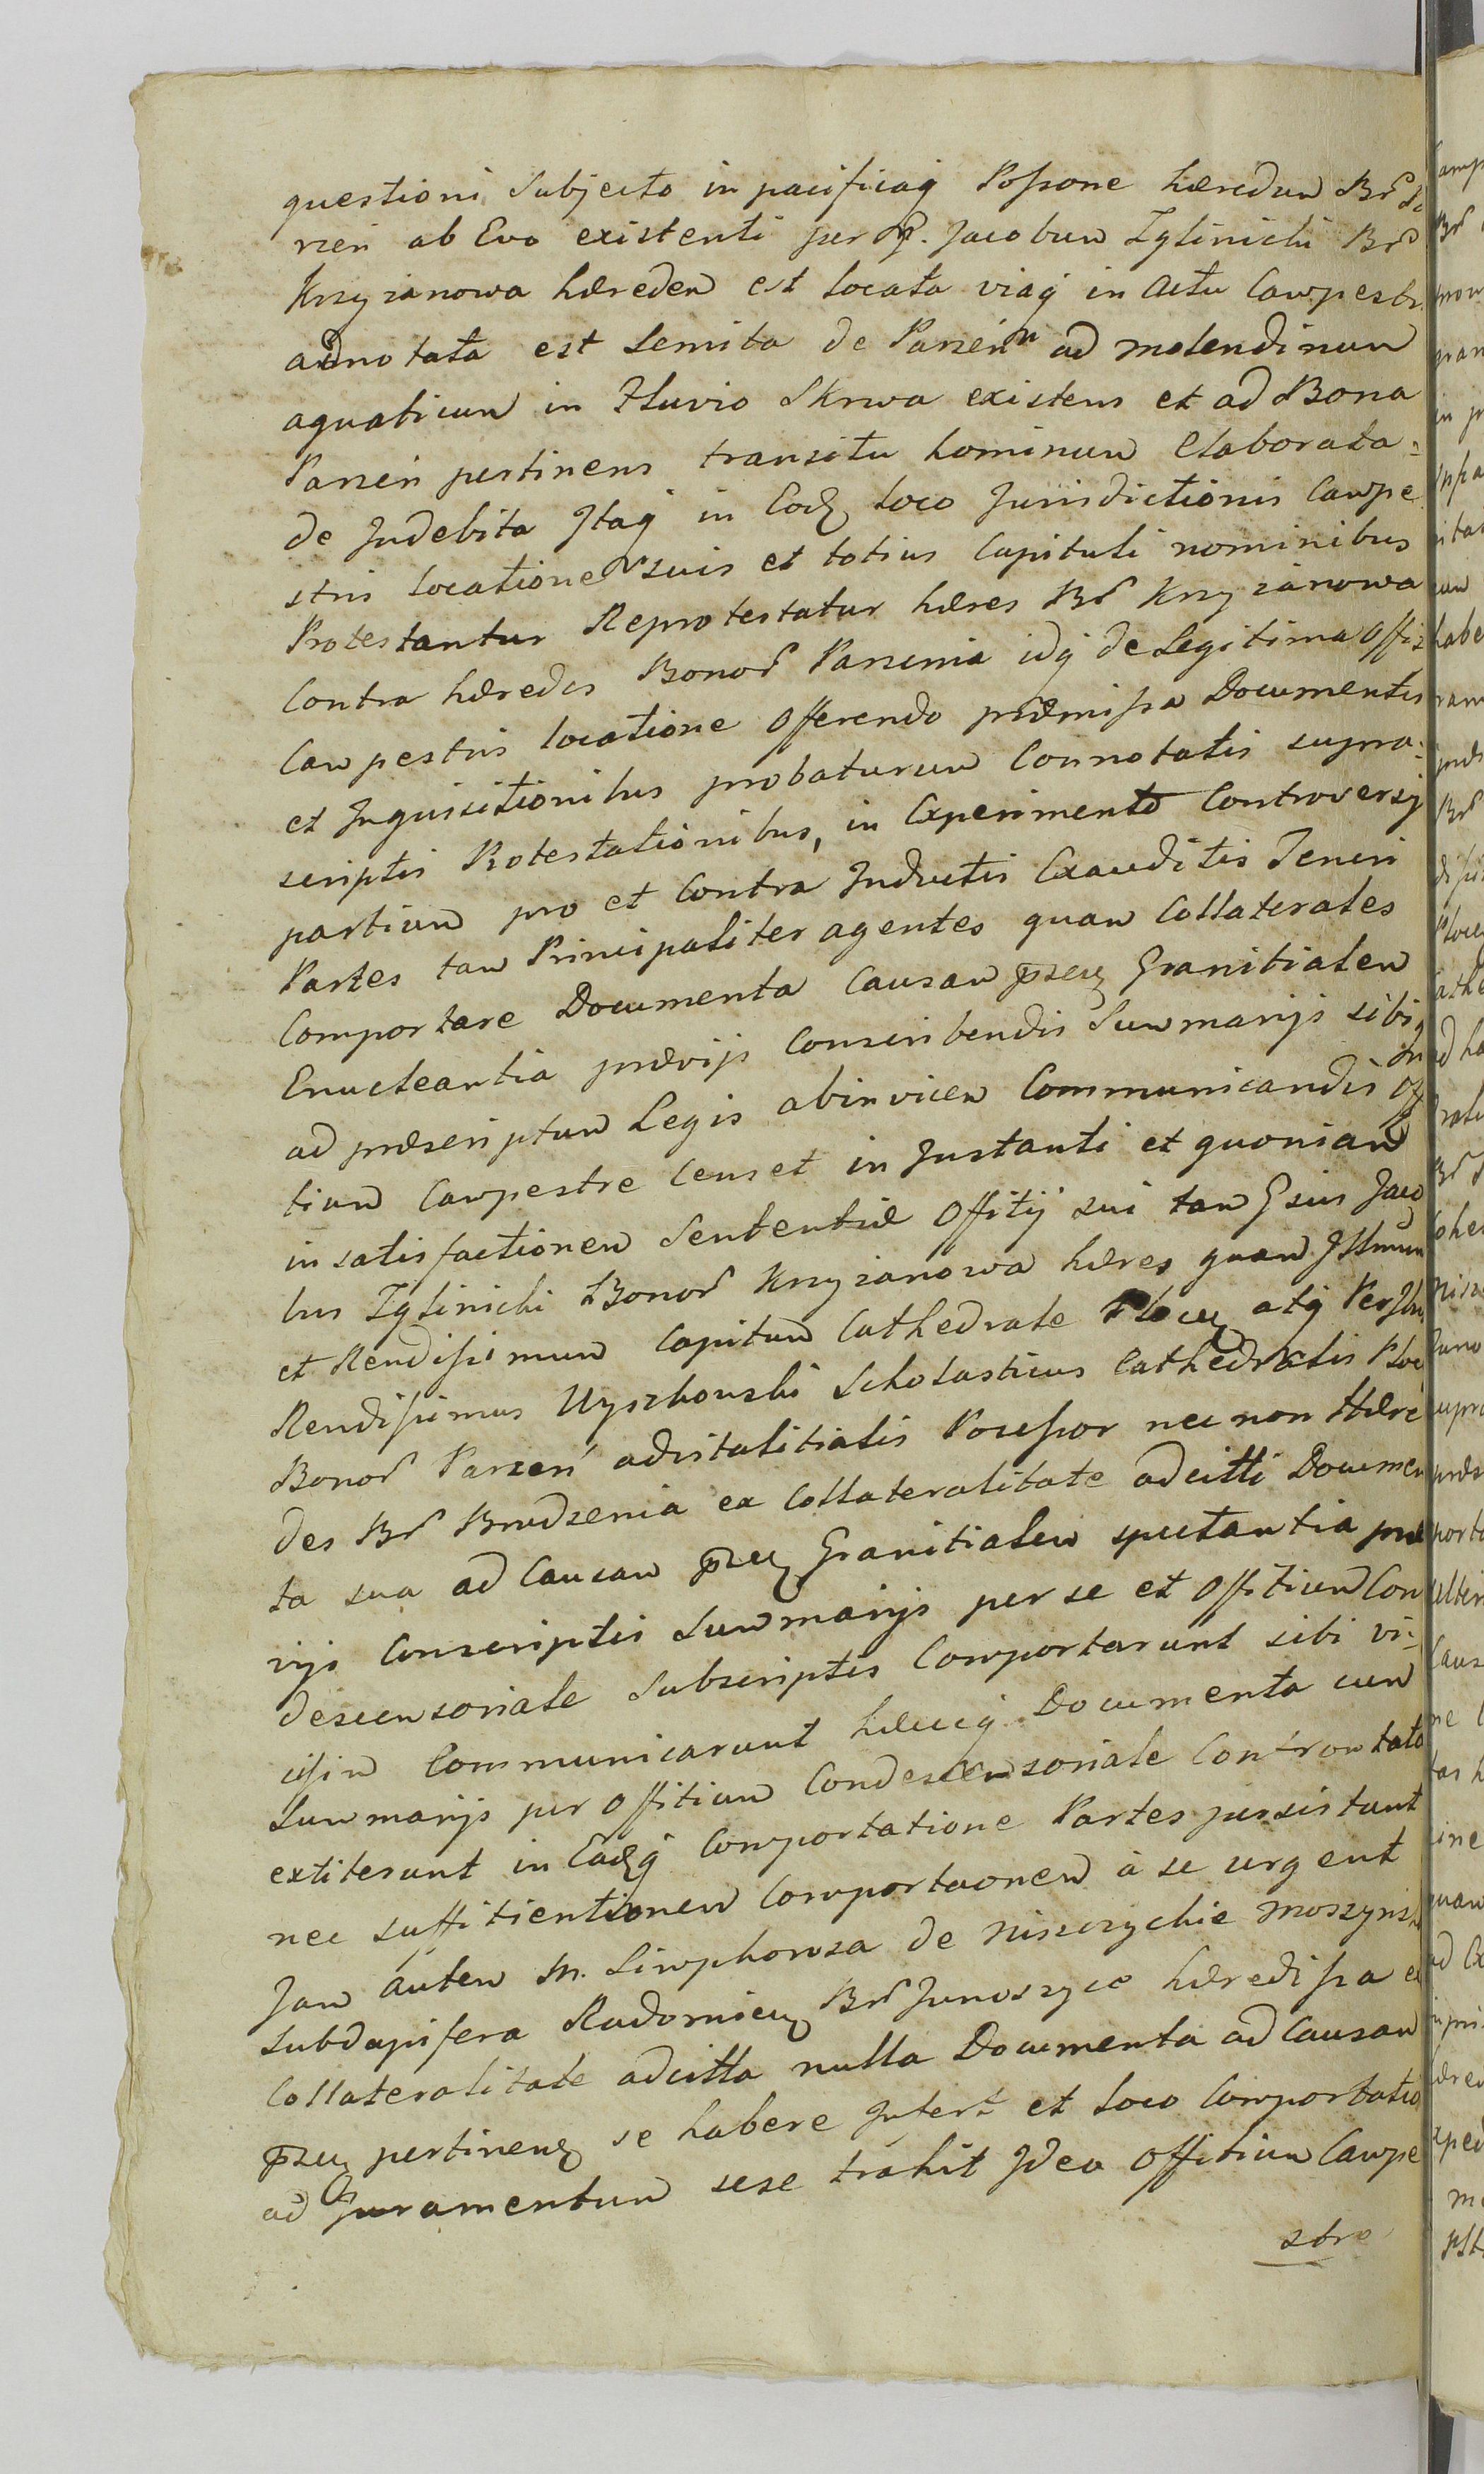 questioni Subjecto in pacificaq Possone hæredum Brd
rzen ab Evo existenti per G. Jacobum Iglinicki Brd
Krzyzanowa hæredem est locata viaq in Actu Campestr
adnotata est Semita de Parzen ad molendinum
aquaticum in Fluvio Skrwa existens et ad Bona
Parzen pertinens transitu hominum Elaborata
de Indebita Itaq in Eodz loco Jurisdictionis Campe
stris locatione suis et totius Capituli nominibus
Protestantur Reprotestatur hæres Brd Krzyzanowa
Contra hæredes Bonord Parzenia idq de Legitima Offiz
Campestris locatione Offerendo præmissa Documentis
et Inquisitionibus probaturum Connotatis supra-
scriptis Protestationibus, in Experimento Controversij
partium pro et Contra Inductis Exauditis Teneri
Partes tam Principaliter agentes quam Collaterales
Comportare Documenta Causam przeuz Granitialem
Enucleantia prævijs Conscribendis Summarijs sibiq
ad præscriptum Legis abinvicem Communicandis Of
tium Campestre Censet in Instanti et quoniam
in satisfactionem Sententiæ Offitij sui tam Gsius Jaco
bus Iglinicki Bonord Krzyzanowa hæres quam Illmum
et Rendissimum Capitum Cathedrale Plocz atq Per Ill
Rendissimus Wyszkowski Scholasticus Cathedralis Ploc
Bonord Parzen advitalitialis Possessor nec non Hære
des Brd Brudzenia ex Collateralitate adcitti Documen
ta sua ad Causam przez Granitialem spectantia præ
vijs Conscriptis Summarijs per se et Offitium Con
descensoriale Subscriptis Comportarunt sibi vi-
cissim Communicarunt hæcq Documenta cum
Summarijs per Offitium Condescensoriale Controntata
extiterunt in Eadzq Comportatione Partes persistunt
nec suffitientionem Comportaonem à se urgent
Jam autem M. Simphoroza de Niszczyckie Moszynska
Subdapifera Radomicz Brd Junoszyce hæredissa ex
Collateralitate adcitta nulla Documenta ad Causam
przez pertinenz se habere Infert et loco Comportatio
ad Juramentum sese trahit Ideo Offitium Campe
stre